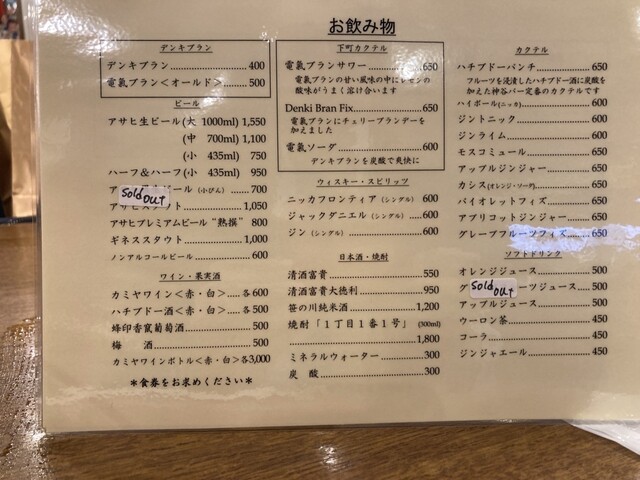 お飲み物
デンキブラン
デンキブラン 400
電氣ブラン<オールド> 500
ビール
アサヒ生ビール(大 1000ml) 1,550
(中 700ml) 1,100
(小 435ml) 750
ハーフ&ハーフ(小 435ml) 950
ア Sold out ビール (小びん) 700
アサヒスタウト 1,050
アサヒプレミアムビール“熟撰” 800
ギネススタウト 1,000
ノンアルコールビール 600
ワイン・果実酒
カミヤワイン<赤・白> 各600
ハチブドー酒<赤・白> 各500
蜂印香竄葡萄酒 500
梅 酒 500
カミヤワインボトル<赤・白>各3,000
*食券をお求めください*
下町カクテル
電氣ブランサワー 650
電氣ブランの甘い風味の中にレモンの
酸味がうまく溶け合います
Denki Bran Fix 650
電氣ブランにチェリーブランデーを
加えました
電氣ソーダ 600
デンキブランを炭酸で爽快に
ウィスキー・スピリッツ
ニッカフロンティア (シングル) 600
ジャックダニエル (シングル) 600
ジン (シングル) 600
日本酒・焼酎
清酒富貴 550
清酒富貴大徳利 950
笹の川純米酒 1,200
焼酎「1丁目1番1号」 (300ml)
1,800
ミネラルウォーター 300
炭 酸 300
カクテル
ハチブドーパンチ 650
フルーツを浸漬したハチブドー酒に炭酸を
加えた神谷バー定番のカクテルです
ハイボール(ニッカ) 600
ジントニック 600
ジンライム 600
モスコミュール 650
アップルジンジャー 650
カシス(オレンジ・ソーダ) 650
バイオレットフィズ 650
アプリコットジンジャー 650
グレープフルーツフィズ 650
ソフトドリンク
オレンジジュース 500
グ Sold out ーツジュース 500
アップルジュース 500
ウーロン茶 450
コーラ 450
ジンジャエール 450